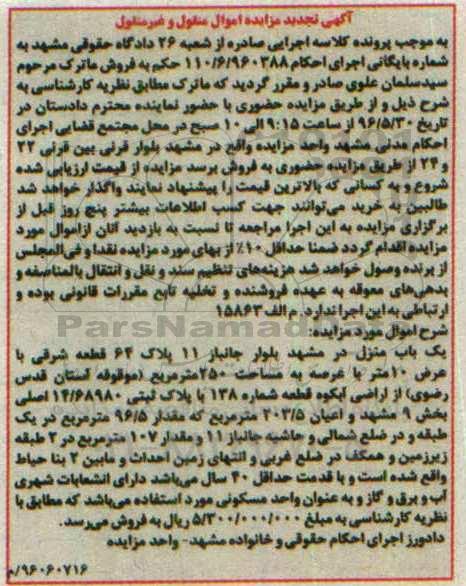 آگهی تجدید مزایده اموال منقول و غیرمنقول
به موجب پرونده کلاسه اجرایی صادره از شعبه ۲۶ دادگاه حقوقی مشهد به
شماره بایگانی اجرای احکام ۱۱۰/۶/۹۶۰۳۸۸ حکم به فروش ماترک مرحوم
سیدسلمان علوی صادر و مقرر گردید که ماترک مطابق نظریه کارشناسی به
شرح ذیل و از طریق مزایده حضوری با حضور نماینده محترم دادستان در
تاریخ ۹۶/۵/۳۰ از ساعت ۹:۱۵ الی ۱۰ صبح در محل مجتمع قضایی اجرای
احکام مدنی مشهد واحد مزایده واقع در مشهد بلوار قرنی بین قرنی ۲۲
و ۲۴ از طریق مزایده حضوری به فروش برسد مزایده از قیمت ارزیابی شده
شروع و به کسانی که بالاترین قیمت را پیشنهاد نمایند واگذار خواهد شد
طالبین به خرید می‌توانند جهت کسب اطلاعات بیشتر پنج روز قبل از
برگزاری مزایده به این اجرا مراجعه تا نسبت به بازدید آنان ازاموال مورد
مزایده اقدام گردد ضمنا حداقل ۱۰٪ از بهای مورد مزایده نقدا و فی‌المجلس
از برنده وصول خواهد شد هزینه‌های تنظیم سند و نقل و انتقال بالمناصفه و
بدهی‌های معوقه به عهده فروشنده و تخلیه تابع مقررات قانونی بوده و
ارتباطی به این اجرا ندارد. م الف ۱۵۸۶۳
شرح اموال مورد مزایده:
یک باب منزل در مشهد بلوار جانباز ۱۱ پلاک ۶۴ قطعه شرقی با
عرض ۱۰متر با عرصه به مساحت ۲۵۰مترمربع (موقوفه آستان قدس
رضوی) از اراضی آبکوه قطعه شماره ۱۳۸ با پلاک ثبتی ۱۴/۶۸۹۸۰ اصلی
بخش ۹ مشهد و اعیان ۲۰۳/۵ مترمربع که مقدار ۹۶/۵ مترمربع در یک
طبقه و در ضلع شمالی و حاشیه جانباز ۱۱ و مقدار ۱۰۷ مترمربع در ۲ طبقه
زیرزمین و همکف در ضلع غربی و انتهای زمین احداث و مابین ۲ بنا حیاط
واقع شده است و با قدمت حداقل ۴۰ سال می‌باشد دارای انشعابات شهری
آب و برق و گاز و به عنوان واحد مسکونی مورد استفاده می‌باشد که مطابق با
نظریه کارشناسی به مبلغ ۵/۳۰۰/۰۰۰/۰۰۰ ریال به فروش می‌رسد.
دادورز اجرای احکام حقوقی و خانواده مشهد- واحد مزایده
۹۶۰۶۰۷۱۶/م
ParsNamad